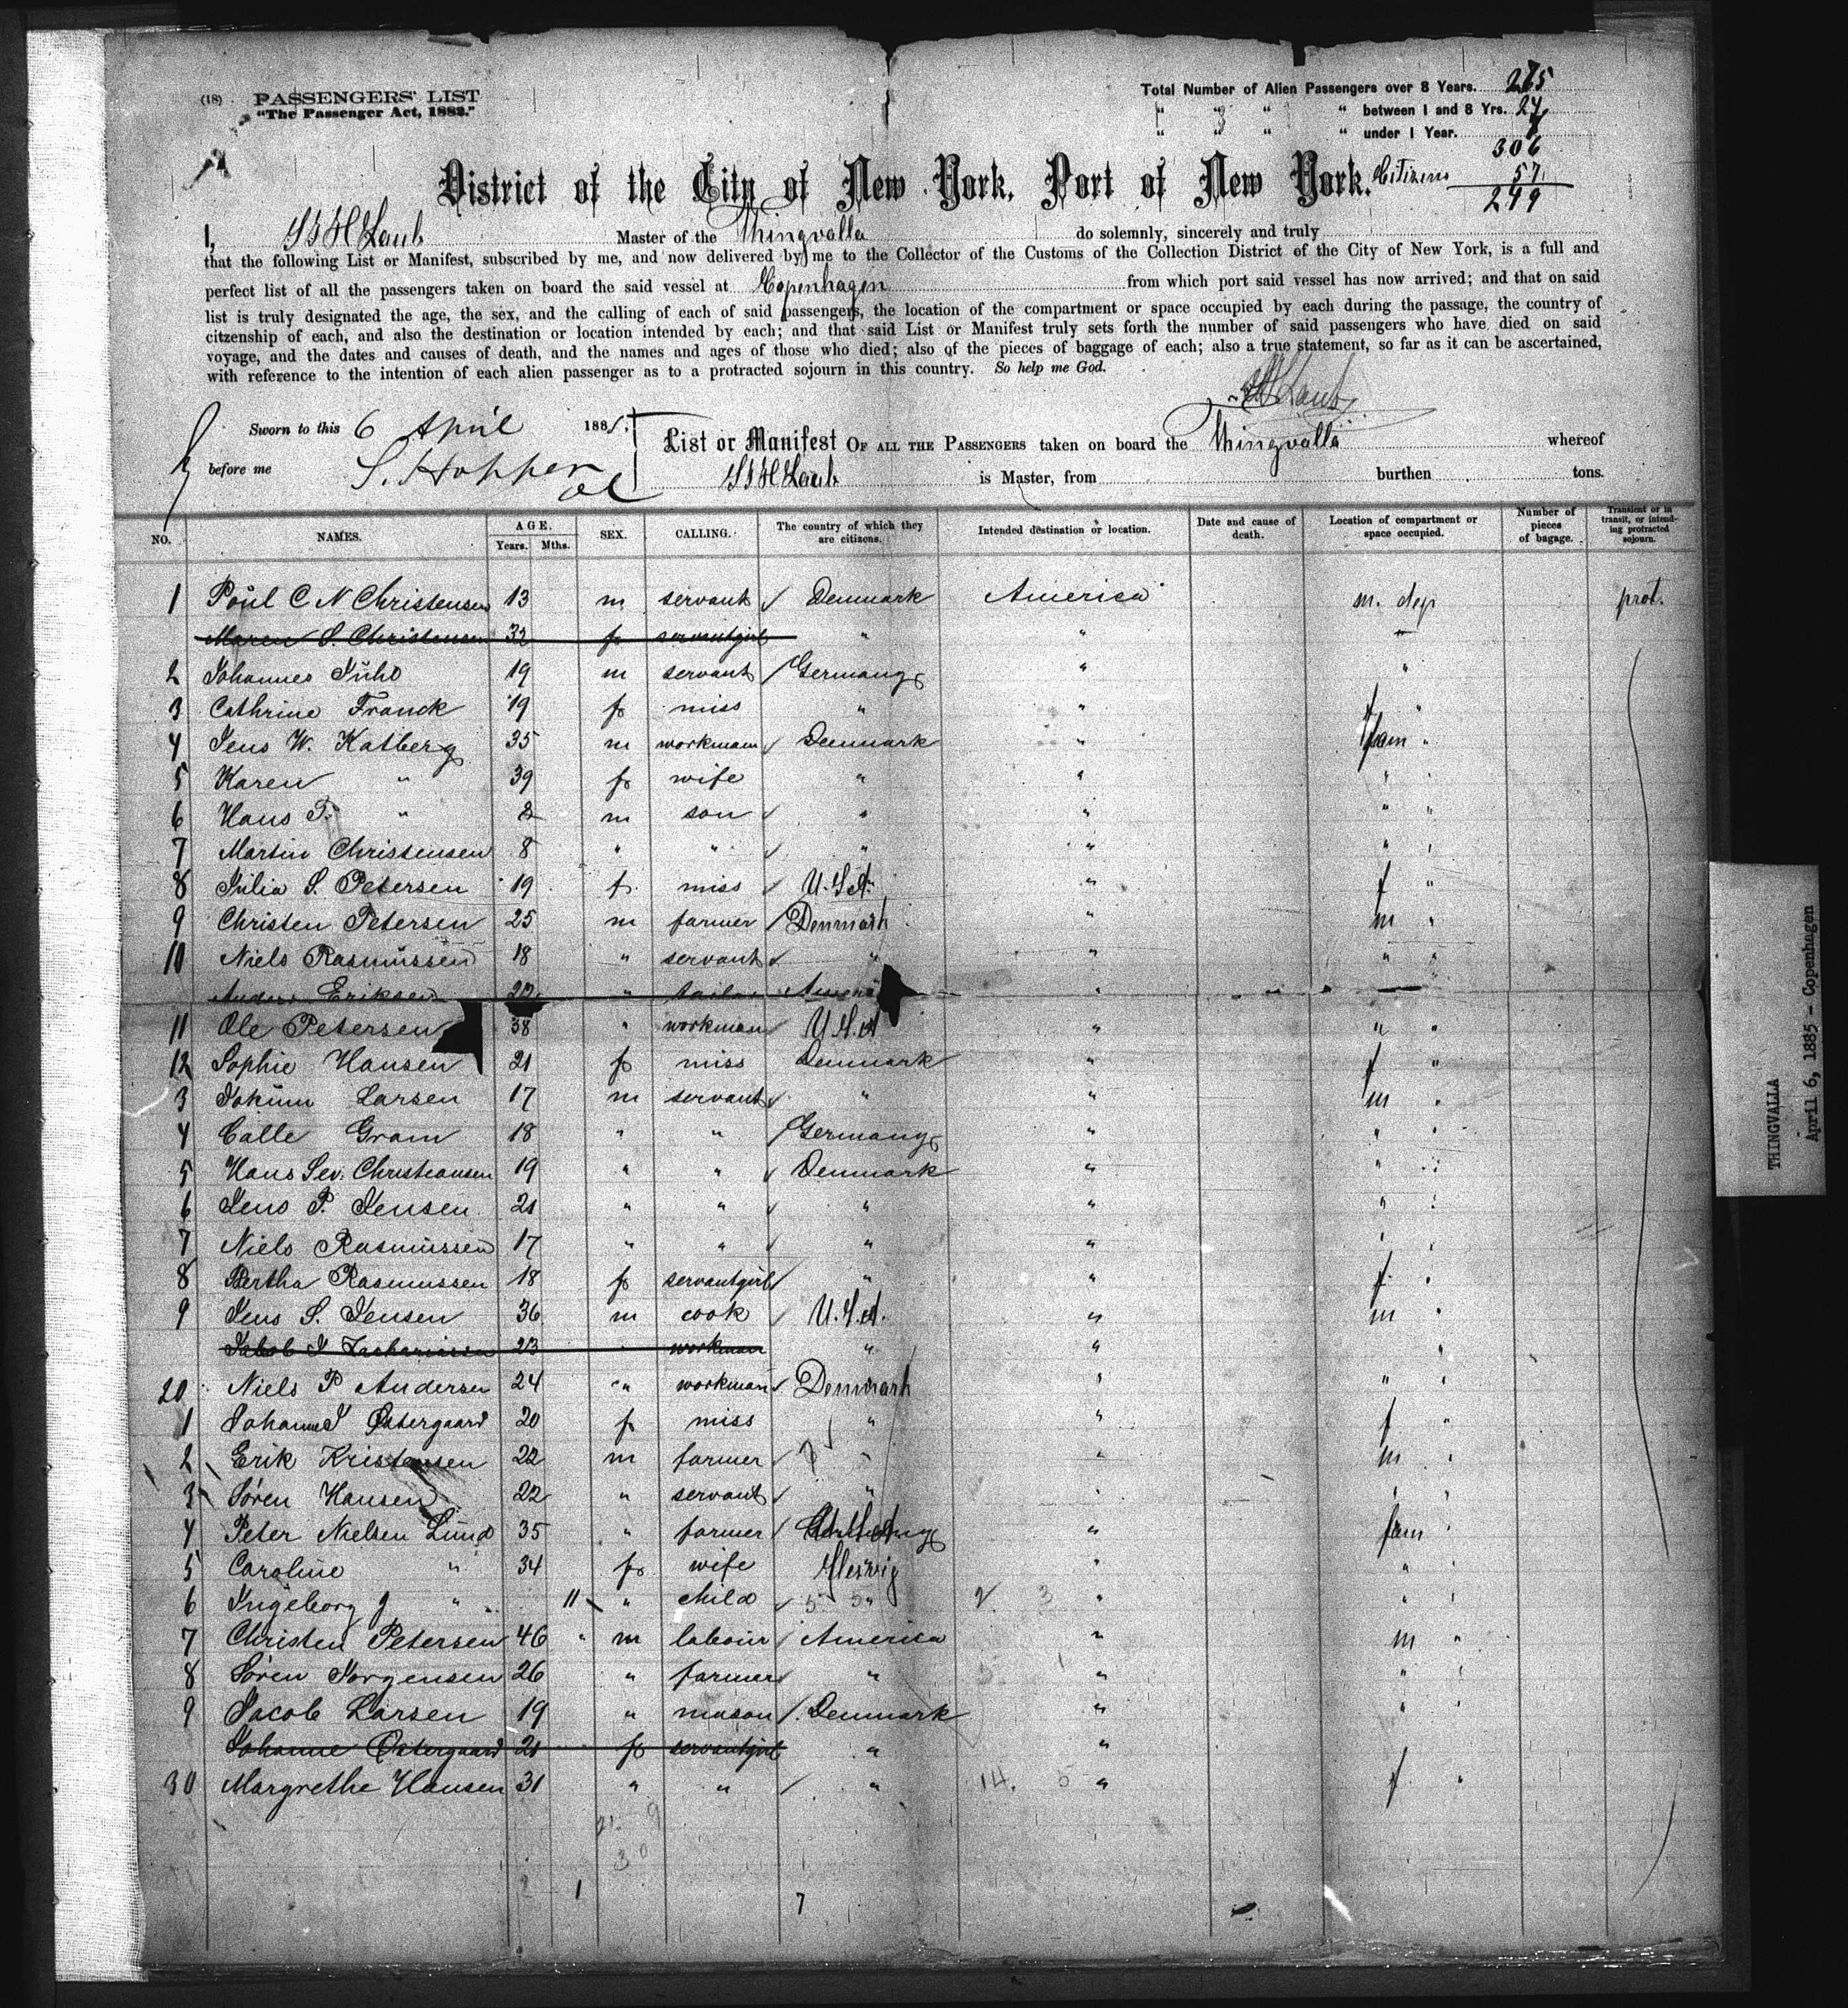 (18) PASSENGERS' LIST
"The Passenger Act, 1882."
Total Number of Alien Passengers over 8 Years. 275
" " " " between 1 and 8 Yrs. 24
" " " " under 1 Year. 7
306
Citizens 57
249
District of the City of New York, Port of New York.
I, Laub Master of the Thingvalla do solemnly, sincerely and truly
that the following List or Manifest, subscribed by me, and now delivered by me to the Collector of the Customs of the Collection District of the City of New York, is a full and
perfect list of all the passengers taken on board the said vessel at Copenhagen from which port said vessel has now arrived; and that on said
list is truly designated the age, the sex, and the calling of each of said passengers, the location of the compartment or space occupied by each during the passage, the country of
citzenship of each, and also the destination or location intended by each; and that said List or Manifest truly sets forth the number of said passengers who have died on said
voyage, and the dates and causes of death, and the names and ages of those who died; also of the pieces of baggage of each; also a true statement, so far as it can be ascertained,
with reference to the intention of each alien passenger as to a protracted sojourn in this country. So help me God.
Laub
Sworn to this 6 April 1885.
before me S. Hopper
List or Manifest OF ALL THE PASSENGERS taken on board the Thingvalla whereof
Laub is Master, from burthen tons.
NO. NAMES. AGE. Years. Mths. SEX. CALLING. The country of which they are citizens. Intended destination or location. Date and cause of death. Location of compartment or space occupied. Number of pieces of bagage. Transient or in transit, or intending protracted sojourn.
1 Poul C N Christensen 13 m servant Denmark America m. dep prot.
Maren S. Christensen 32 f servantgirl " "
2 Johannes Juhl 19 m servant Germany " "
3 Cathrine Franck 19 f miss " " f "
4 Jens W. Katberg 35 m workman Denmark " fam "
5 Karen " 39 f wife " " " "
6 Hans P. " 8 m son " " " "
7 Martin Christensen 8 " " " " " "
8 Julia S. Petersen 19 f. miss U.S.A. " f "
9 Christen Petersen 25 m farmer Denmark " m "
10 Niels Rasmussen 18 " servant " " " "
Anders Eriksen 22 " tailor " "
11 Ole Petersen 38 " workman U.S.A " " "
12 Sophie Hansen 21 f miss Denmark " f "
3 Jokum Larsen 17 m servant " " m "
4 Calle Gram 18 " " Germany " " "
5 Hans Sev. Christiansen 19 " " Denmark " " "
6 Jens P. Jensen 21 " " " " " "
7 Niels Rasmussen 17 " " " " " "
8 Bertha Rasmussen 18 f servantgirl " " f. "
9 Jens S. Jensen 36 m cook U.S.A. " m "
Jakob J Zachariasen 23 workman " " "
20 Niels P Andersen 24 " workman Denmark " " "
1 Johanne J Østergaard 20 f miss " " f "
2 Erik Kristensen 22 m farmer " " m "
3 Søren Hansen 22 " servant " " " "
4 Peter Nielsen Lund 35 " farmer " fam "
5 Caroline " 34 f wife Slesvig " " "
6 Ingeborg J " 11 " child 5 5 " 2 3 " " "
7 Christen Petersen 46 " m labour America " m "
8 Søren Jorgensen 26 " farmer " " " "
9 Jacob Larsen 19 " mason Denmark " " "
Johanne Østergaard 21 f servantgirl " "
30 Margrethe Hansen 31 " " " 14. 5 " f "
21 9
30
1 7
THINGVALLA
April 6, 1885 - Copenhagen